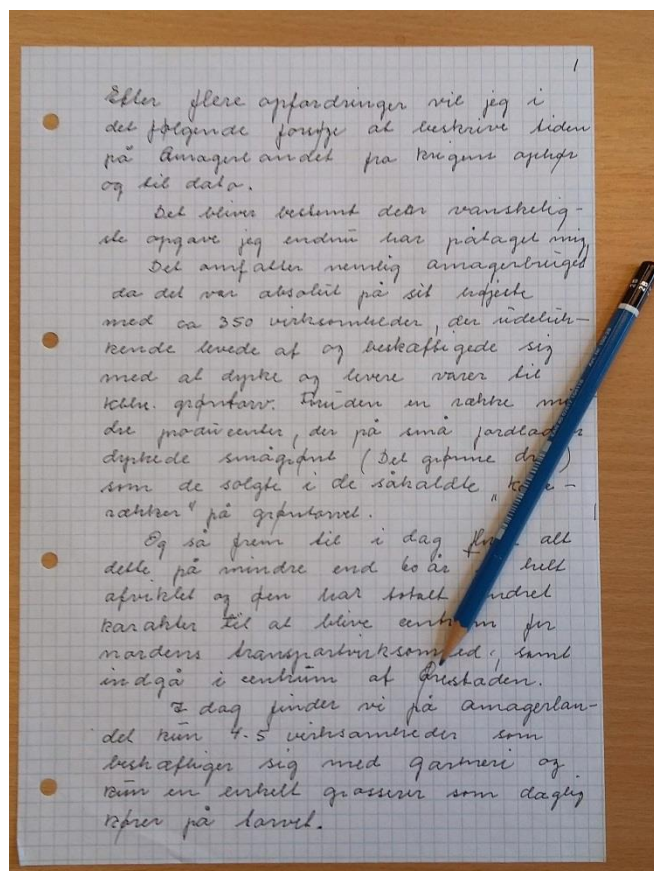 1
Efter flere opfordringer vil jeg i
det følgende forsøge at beskrive tiden
på Amagerlandet fra krigens ophør
og til dato.
Det bliver bestemt den vanskelig-
ste opgave jeg endnu har påtaget mig,
Det omfatter nemlig amagerbruget
da det var absolut på sit højeste
med ca 350 virksomheder, der udeluk-
kende levede af og beskæftigede sig
med at dyrke og levere varer til
Kbhv. grøntorv. Foruden en række
dre producenter, der på små
dyrkede smågrønt (Det grønne
som de solgte i de såkaldte „
rækker" på grøntorvet.
Og så frem til i dag alt
dette på mindre end 60 år helt
afviklet og øen har totalt ændret
karakter til at blive centrum for
nordens transportvirksomhed, samt
indgå i centrum af Ørestaden.
I dag finder vi på amagerlan-
det kun 4-5 virksomheder som
beskæftiger sig med gartneri og
kun en enkelt grosserer som daglig
kører på torvet.